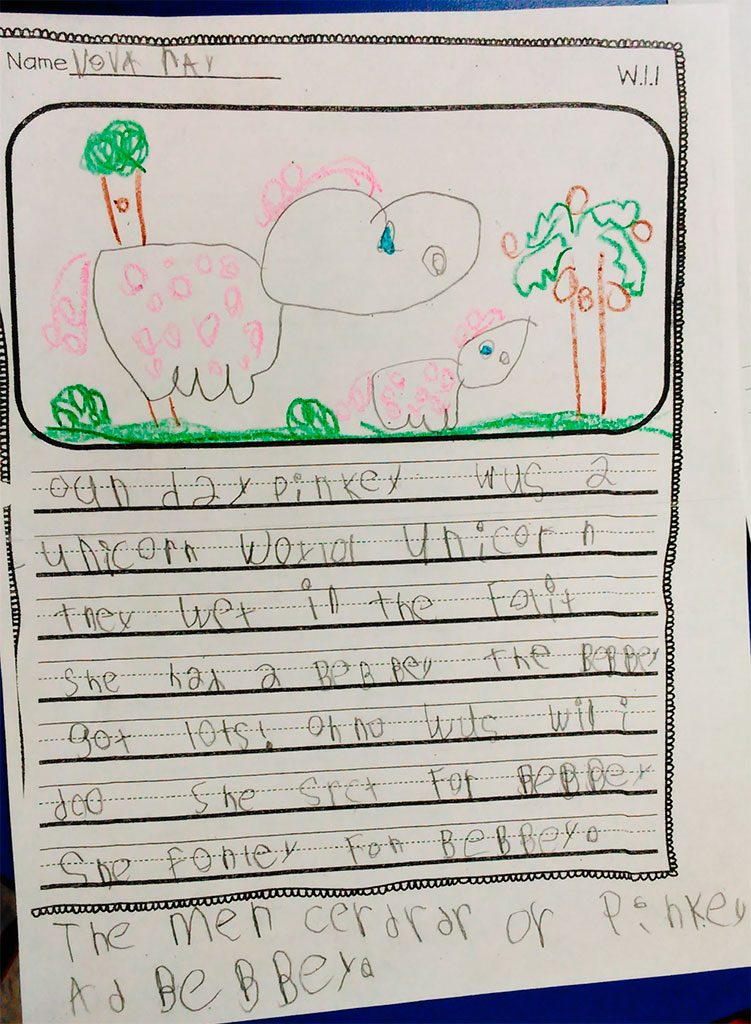 Name VOVA DAY
W.1.1
oun day pinkey wus a
unicorn world unicorn
they wet in the
she had a BEBBey the BEBBey
got lots! oh no wus wil i
doo she srct for BEBBey
She for BEBBeyo
The men cerarar or Pinkey
Ad BeBBeya